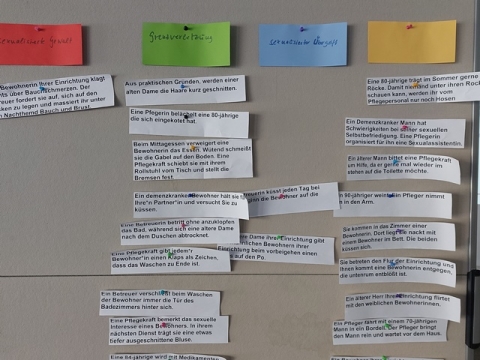 Sexualisierte Gewalt
Grenzverletzung
sexualisierter Übergriff
Bewohnerin Ihrer Einrichtung klagt
über Bauchschmerzen. Der
fordert sie auf, sich auf den
zu legen und massiert ihr unter
Nachthemd Bauch und Brust.
Aus praktischen Gründen, werden einer
alten Dame die Haare kurz geschnitten.
Eine Pflegerin belächelt eine 80-jährige
die sich eingekotet hat.
Beim Mittagessen verweigert eine
Bewohnerin das Essen. Wütend schmeißt
sie die Gabel auf den Boden. Eine
Pflegekraft schiebt sie mit ihrem
Rollstuhl vom Tisch und stellt die
Bremsen fest.
Ein demenzkranker Bewohner hält sich
Ihre*n Partner*in und versucht Sie zu
küssen.
küsst jeden Tag bei
der Bewohner auf die
Eine Betreuerin betritt ohne anzuklopfen
das Bad, während sich eine ältere Dame
nach dem Duschen abtrocknet.
Dame Ihrer Einrichtung gibt
Bewohnern Ihrer
Einrichtung beim vorbeigehen einen
auf den Po.
Eine Pflegekraft gibt jedem*r
Bewohner*in einen Klaps als Zeichen,
dass das Waschen zu Ende ist.
Ein Betreuer verschließt beim Waschen
der Bewohner immer die Tür des
Badezimmers hinter sich.
Eine Pflegekraft bemerkt das sexuelle
Interesse eines Bewohners. In ihrem
nächsten Dienst trägt sie eine etwas
tiefer ausgeschnittene Bluse.
Eine 84-jährige wird mit Medikamenten
Eine 80-jährige trägt im Sommer gerne
Röcke. Damit niemand unter ihren Rock
schauen kann, werden ihr vom
Pflegepersonal nur noch Hosen
Ein Demenzkranker Mann hat
Schwierigkeiten bei seiner sexuellen
Selbstbefriedigung. Eine Pflegerin
organisiert für ihn eine Sexualassistentin.
Ein älterer Mann bittet eine Pflegekraft
um Hilfe, da er gerne mal wieder im
stehen auf die Toilette möchte.
90-jähriger weint. Ein Pfleger nimmt
in den Arm.
Sie kommen in das Zimmer einer
Bewohnerin. Dort liegt die nackt mit
einem Bewohner im Bett. Die beiden
küssen sich.
Sie betreten den Flur der Einrichtung und
Ihnen kommt eine Bewohnerin entgegen,
die untenrum entblößt ist.
Ein älterer Herr Ihrer Einrichtung flirtet
mit den weiblichen Bewohnerinnen.
Ein Pfleger fährt mit einem 70-jährigen
Mann in ein Bordell. Der Pfleger bringt
den Mann rein und wartet vor dem Haus.